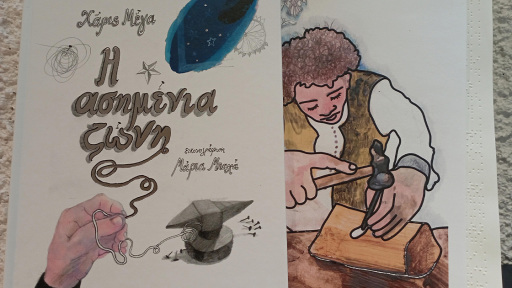 Χάρις Μέγα
Η
ασημένια
ζώνη
εικονογράφηση
Μάρια Μπαχά